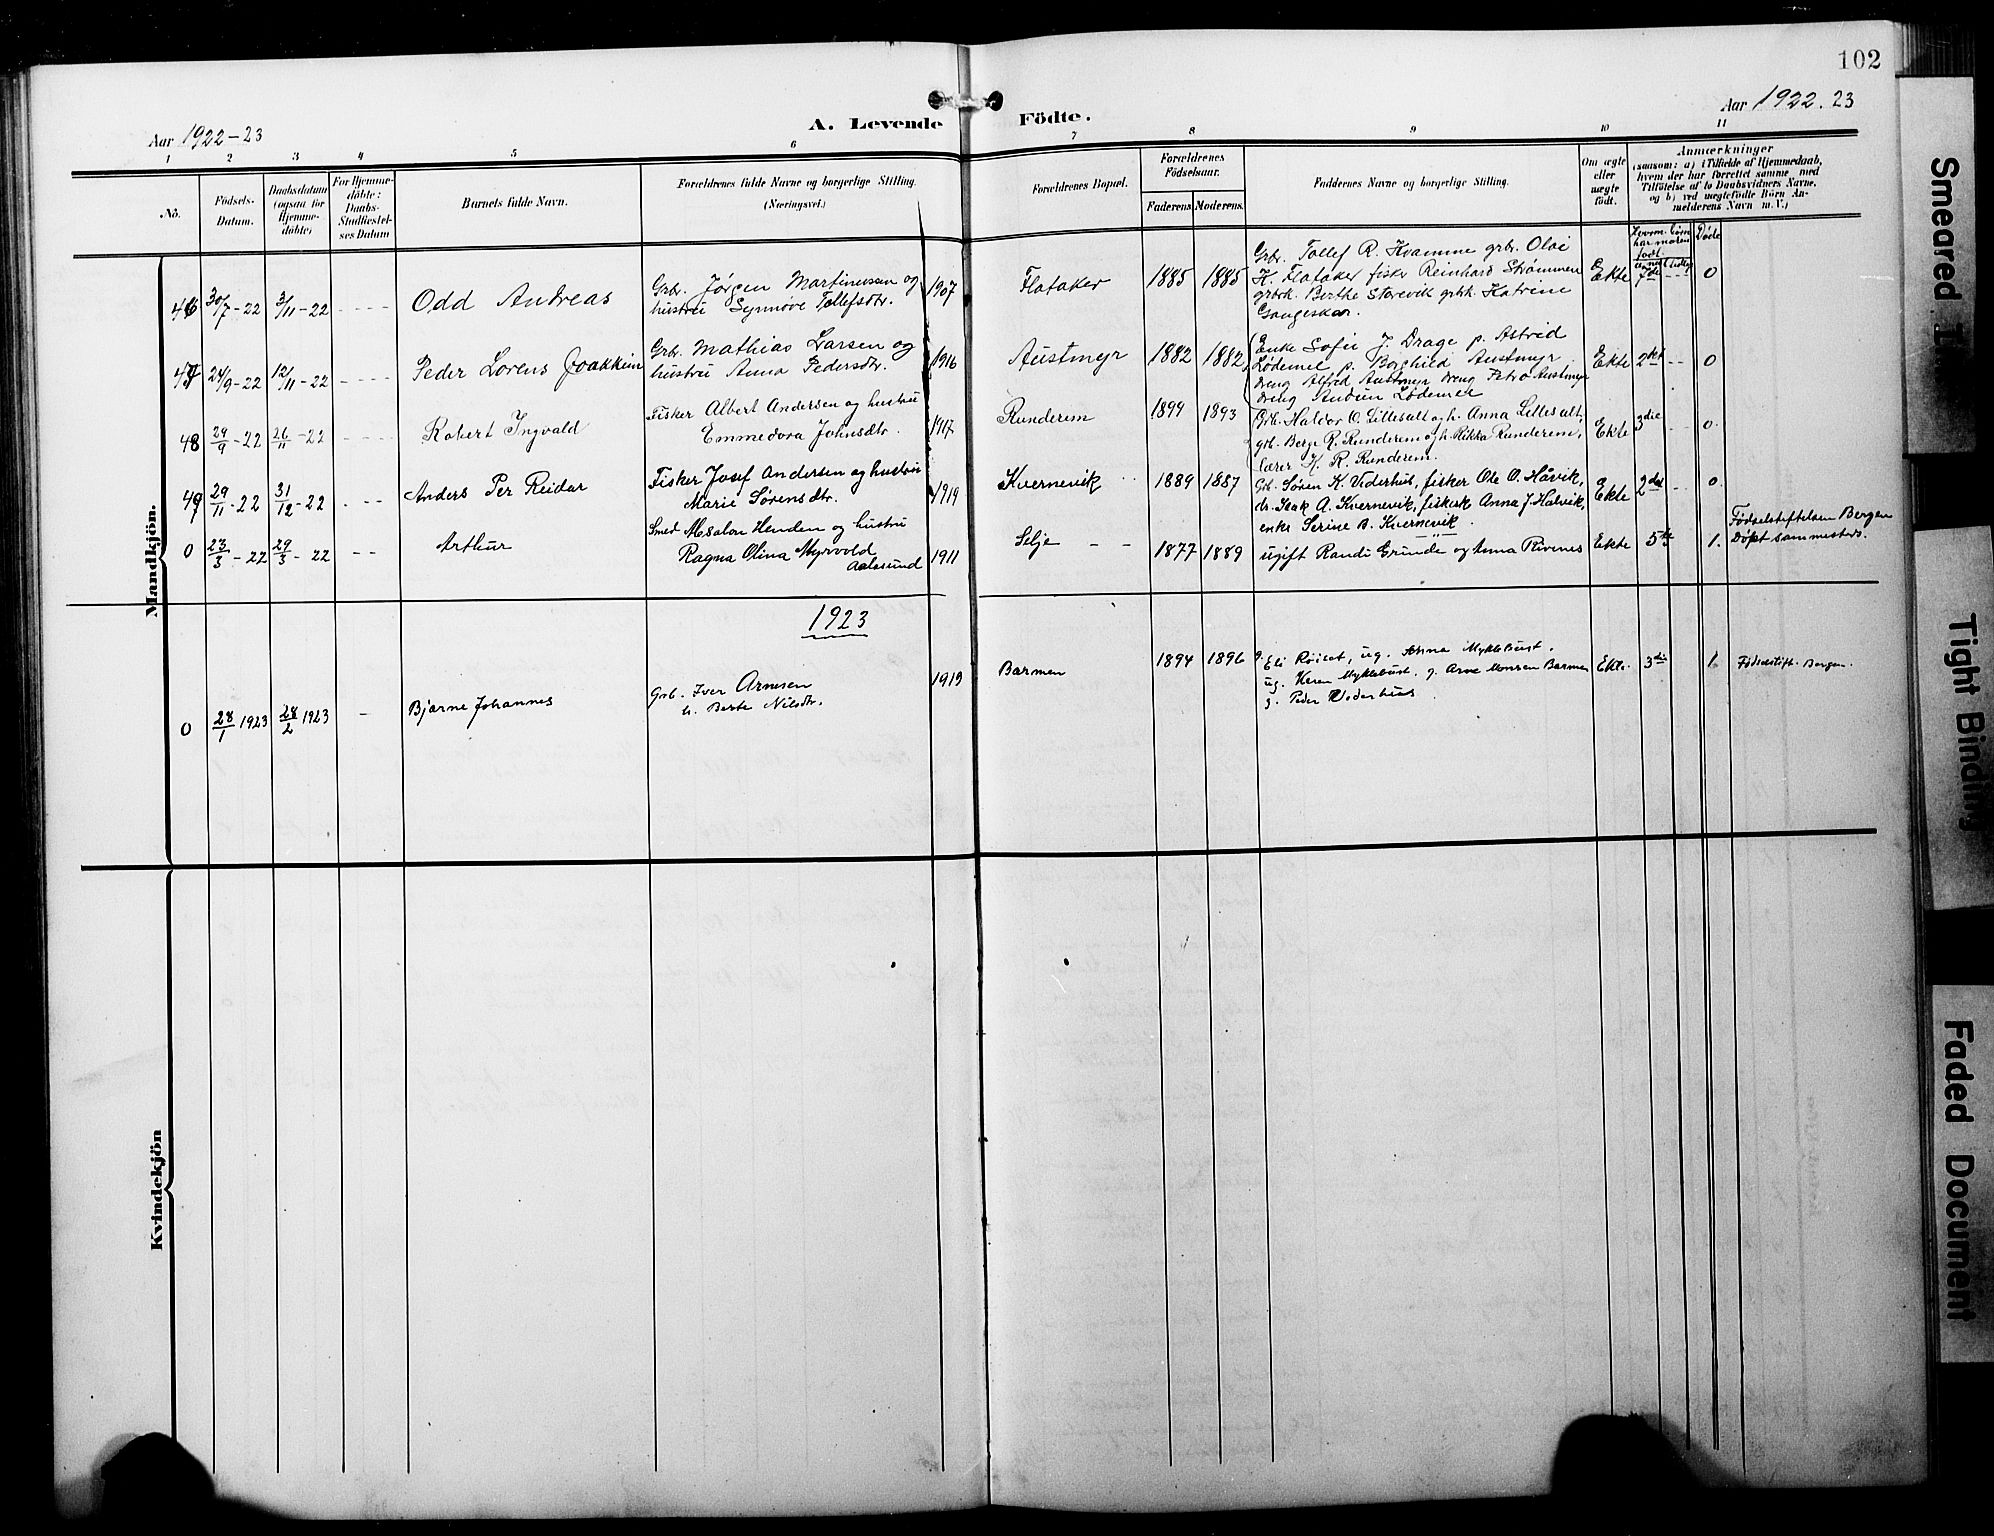 102
Aar 1922-23
A. Levende Födte.
Aar 1922. 23
1 2 3 4 5 6 7 8 9 10 11
No.
Födsels-Datum.
Daabsdatum (ogsaa for Hjemme-döbte)
For Hjemme-döbte: Daabs-Stadfæstel-ses Datum
Barnets fulde Navn.
Forældrenes fulde Navne og borgerlige Stilling. (Næringsvei.)
Forældrenes Bopæl.
Forældrenes Födselsaar.
Faderens Moderens.
Faddernes Navne og borgerlige Stilling.
Om ægte eller uægte födt.
Anmærkninger
(saasom: a) i Tilfælde af Hjemmedaab, hvem der har forrettet samme, med Tilföielse af to Daabsvidners Navne, og b) ved uægtefödte Börn Anmelderens Navn m. V.)
Døde
Mandkjön.
46 30/7-22 3/11-22 Odd Andreas
Grbr. Jørgen Martinussen og
hustru Synnøve Tollefsdtr. 1907
Flataker 1885 1885
Grbr. Tollef R. Hvamme grbr. Olai
H. Flataker fisker Reinhard Strømmen
grbrk. Berthe Storevik grbrk. Katrine
Gangeskar.
Ekte 7de 0
47 24/9-22 12/11-22 Peder Lorens Joakkim
Grbr. Mathias Larsen og
hustru Anna Pedersdtr. 1916
Austmyr 1882 1882
Enke Sofie J. Drage p. Astrid
Lødemel p. Borghild Austmyr
dreng Alfred Austmyr dreng Petro Austmyr
dreng Andreu Lødemel
Ekte 2det 0
48 29/9-22 26/11-22 Robert Ingvald
Fisker Albert Andersen og hustru
Emmedora Johnsdtr. 1917
Runderem 1894 1893
Grb. Haldor O. Lillesalt og h. Anna Lillesalt,
grb. Berge R. Runderem og h. Rikka Runderem,
lærer K. R. Runderem.
Ekte 3die 0.
49 29/11-22 31/12-22 Anders Per Reidar
Fisker Josef Andersen og hustru
Marie Sørensdtr. 1919
Kvernevik 1889 1887
Grb. Søren K. Vederhus, fisker Ole O. Håvik,
dr. Isak A. Kvernevik, fiskersk. Anna J. Halvik,
enke Serine B. Kvernevik.
Ekte 2det 0.
0 23/3-22 29/3-22 Arthur
Smed Absalon Henden og hustru
Ragna Olina Myrvold
Aalesund 1911
Selje 1877 1889
ugift Randi Grinde og Anna Rivenes
Ekte 5te 1.
Födselstiftelsen Bergen
Døpt sammesteds.
1923
0 28/1 1923 28/2 1923 - Bjarne Johannes
Grb. Iver Arnesen
h. Berte Nilsdtr. 1919
Barmen 1894 1896
g. Eli Røiset, ug. Anna Myklebust.
ug. Karen Myklebust. g. Arne Monsen Barmen
g. Peder Vederhus.
Ekte. 3die 1.
Fødselsstift. Bergen.
Kvindekjön
Smeared
Tight Binding
Faded Document